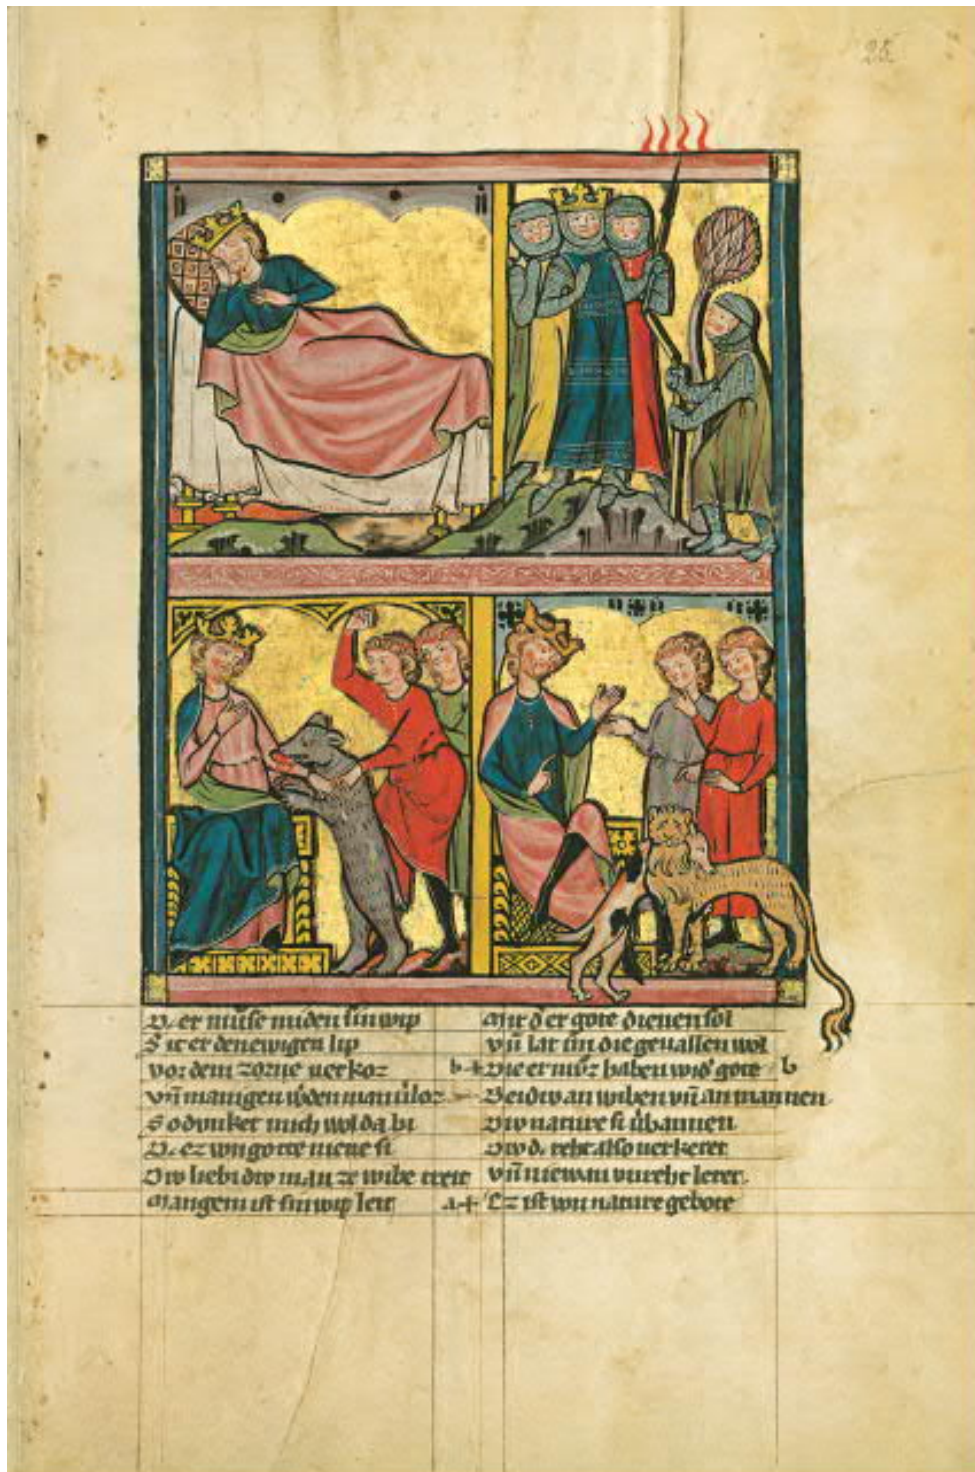 25
D. er muͤse miden sin wip
Sit er den ewigen lip
vor dem zorne verkoz
vn̄ manigen man v̓loz
So dvnket mich wol da bi
D. ez von gotte niene si
Div liebi div man ze wibe treit
Mangem ist sin wip leit
d̓ er gote dienen sol
vn̄ lat sin die geuallen wol
b+ Die er mvͦz haben wid̓ gote b
Beidiv an wiben vn̄ an mannen
Div nature si v̓bannen
Div d. reht also verkeret
vn̄ nieman vnreht leret
a+ Ez ist von nature gebote